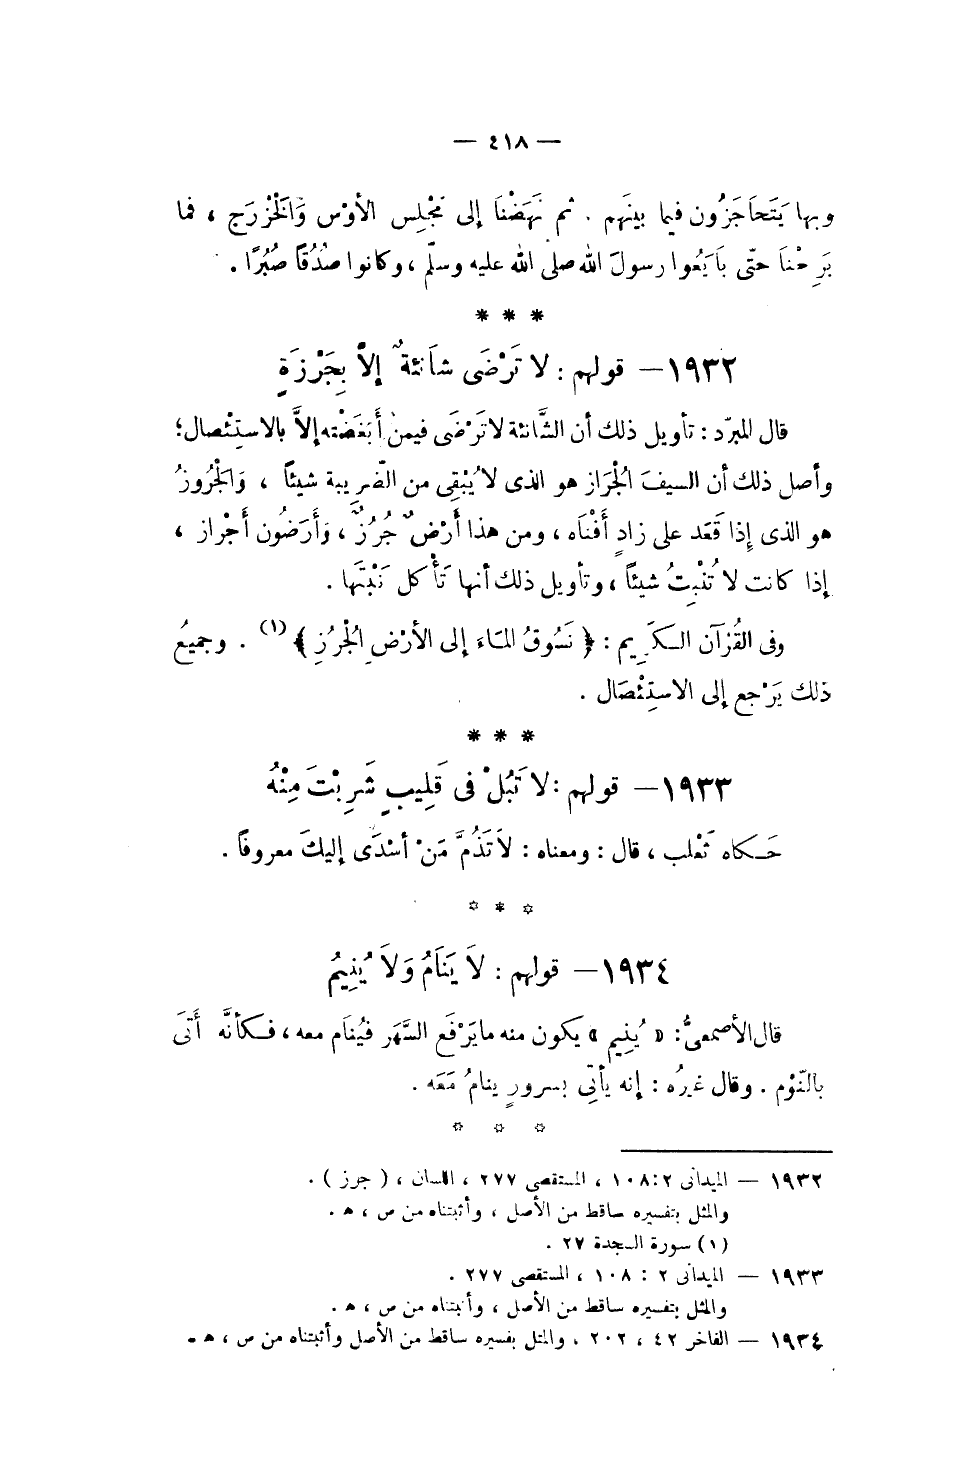 — ٤١٨ —
وبها يَتَحَاجَزُون فيما بينَهم . ثم نَهَضْنَا إلى مَجْلِس الأوْس وَالْخزْرَج ، فما
بَرِحْنَا حتّى بَايَعُوا رسولَ الله صلى الله عليه وسلّم ، وكانوا صُدُقًا صُبُرًا .
* * *
١٩٣٢ — قولهم : لا تَرْضَى شانَئةٌ إلاّ بِجَرْزَةٍ
قال المبرّد : تأويل ذلك أن الشَّانئة لا تَرْضَى فيمن أَبَغَضْته إلاَّ بالاستِئْصال ؛
وأصل ذلك أن السيفَ الْجرَاز هو الذى لا يُبْقِى من الضَّرِيبة شيئاً ، وَالْجُروزُ
هو الذى إِذا قَعَد على زادٍ أَفْنَاه ، ومن هذا أَرْضٌ جُرُزٌ ، وَأَرَضُون أَجْراز ،
إِذا كانت لا تُنْبِتُ شيئاً ، وتأويل ذلك أنها تَأْكل نَبْتَها .
وفى القُرْآن الكَرِيم : ﴿ نَسُوقُ المَاءَ إِلى الأَرْضِ الْجرُزِ ﴾ (١) . وجميعُ
ذلك يَرْجع إلى الاستِئْصَال .
* * *
١٩٣٣ — قولهم : لا تَبُلْ فى قَلِيبٍ شَرِبْتَ مِنْهُ
حَكاه ثَعْلب ، قال : ومعناه : لاَ تَذُمَّ مَنْ أسْدَى إليكَ معروفًا .
* * *
١٩٣٤ — قولهم : لاَ يَنَامُ وَلاَ يُنِيمُ
قال الأصمعىُّ : « يُنِيم » يكون منه ما يَرْفَع السَّهَر فيُنَام معه ، فكأنَّه أَتَى
بالنَّوْم . وقال غيرُه : إنه يأتِى بسرورٍ ينامُ مَعَه .
* * *
١٩٣٢ — الميدانى ٢ : ١٠٨ ، المستقصى ٢٧٧ ، اللسان ، ( جرز ) .
والمثل بتفسيره ساقط من الأصل ، وأثبتناه من ص ، هـ .
(١) سورة السجدة ٢٧ .
١٩٣٣ — الميدانى ٢ : ١٠٨ ، المستقصى ٢٧٧ .
والمثل بتفسيره ساقط من الأصل ، وأثبتناه من ص ، هـ .
١٩٣٤ — الفاخر ٤٢ ، ٢٠٢ ، والمثل بتفسيره ساقط من الأصل وأثبتناه من ص ، هـ .